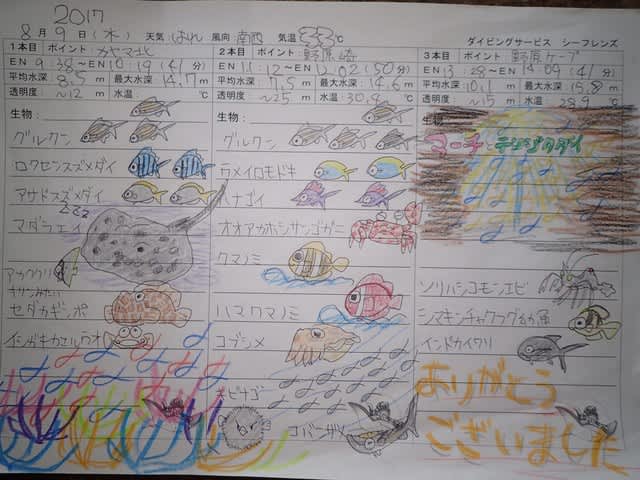 2017
8月9日(水) 天気 はれ 風向 南西 気温 33℃
ダイビングサービス シーフレンズ
1本目 ポイント カヤマ北
EN 9:38~EN 10:19(41分)
平均水深 8.5m 最大水深 14.7m
透明度 ~12m 水温 ℃
生物:
グルクン
ロクセンスズメダイ
アサドスズメダイ
マダラエイ
アカククリ
セダカギンポ
イシガキカエルウオ
2本目 ポイント 野原崎
EN 11:12~EN 12:02(50分)
平均水深 7.5m 最大水深 14.6m
透明度 ~25m 水温 30.9℃
生物:
グルクン
ウメイロモドキ
ハナゴイ
オオアカホシサンゴガニ
クマノミ
ハマクマノミ
コブシメ
キビナゴ
コバンザメ
3本目 ポイント 野原ケーブ
EN 13:28~EN 14:09(41分)
平均水深 10.1m 最大水深 15.8m
透明度 ~15m 水温 28.9℃
生物
アーチ テンジクダイ
ソリハシコモンエビ
インドカイワリ
ありがとう
ございました